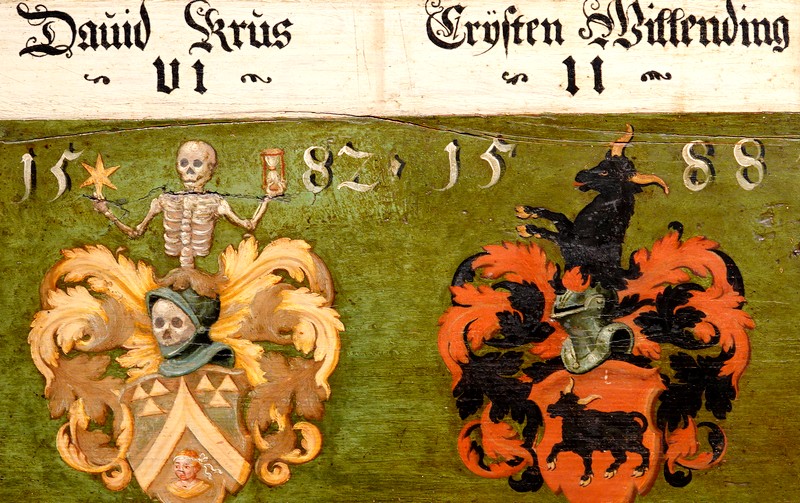 Dauid Krůs
VI
Crÿsten Willending
II
1582
1588